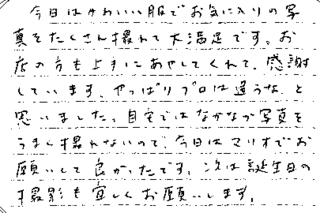 今日はかわいい服でお気に入りの写
真をたくさん撮れて大満足です。お
店の方も上手にあやしてくれて、感謝
しています。やっぱりプロは違うな、と
思いました。自宅ではなかなか写真を
うまく撮れないので、今日はマリオでお
願いして良かったです。次は誕生日の
撮影も宜しくお願いします。